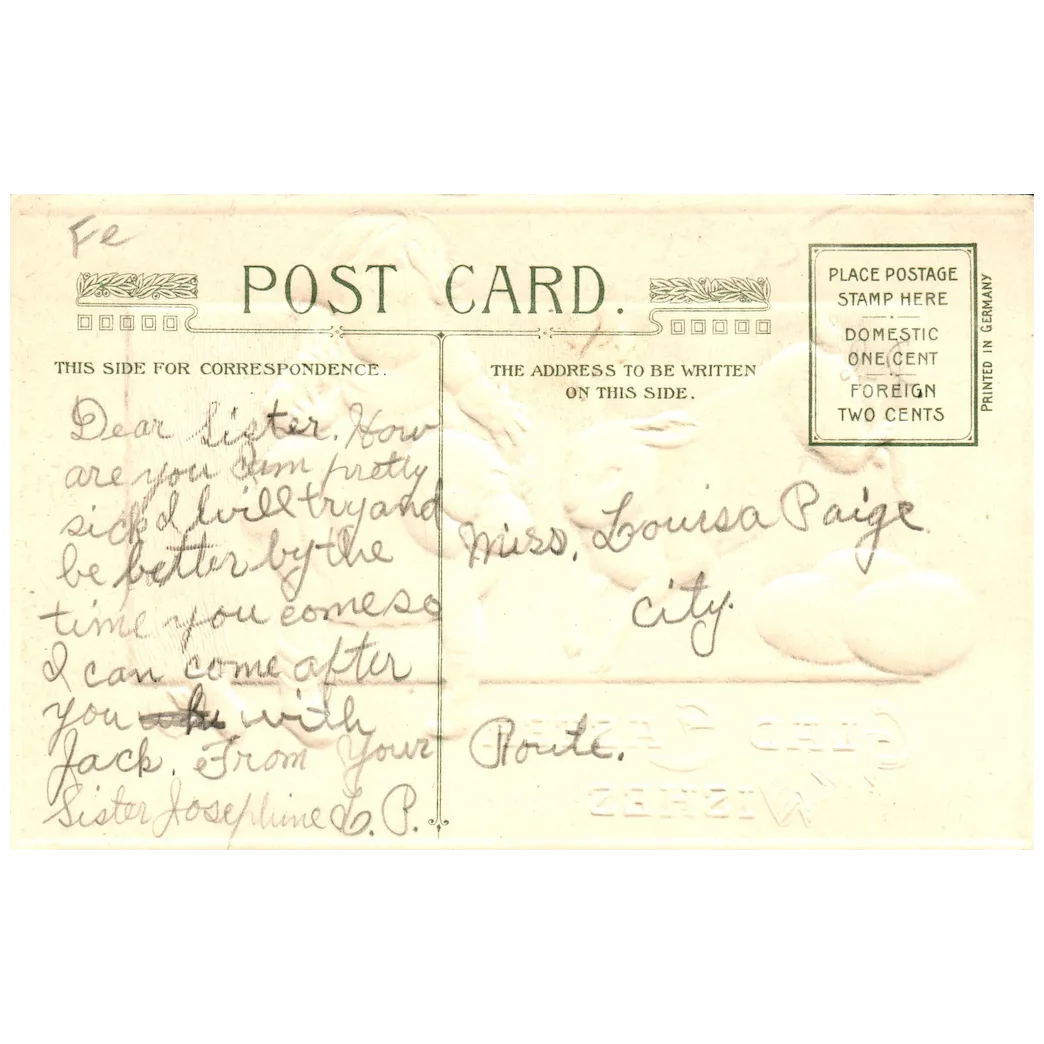 Fe
POST CARD.
THIS SIDE FOR CORRESPONDENCE.
THE ADDRESS TO BE WRITTEN
ON THIS SIDE.
PLACE POSTAGE
STAMP HERE
DOMESTIC
ONE CENT
FOREIGN
TWO CENTS
PRINTED IN GERMANY
Dear Sister. How
are you pretty
sick I will try and
be better by the
time you come so
I can come after
you with
Jack. From Your
Sister Josephine L. P.
Miss. Louisa Paige
City.
Route.
WISHES